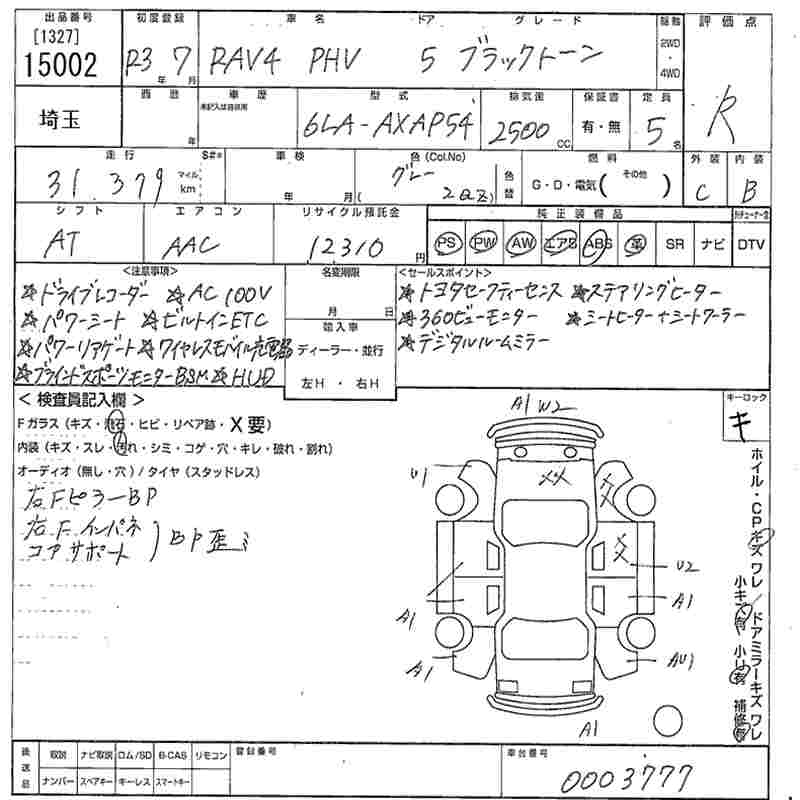 出品番号 初度登録 車名 ドア グレード 駆動 評価点
[1327]
15002 R3 年 7 月 RAV4 PHV 5 ブラックトーン 2WD・4WD R
埼玉 西暦 年 車歴 型式 排気量 保証書 定員
未記入は自家用 6LA-AXAP54 2500 CC 有・無 5 名
走行 S#* 車検 色(Col.No) 燃料 外装 内装
31,379 マイル km 年 月 グレー (2QZ) 色替 G・D・電気( その他 ) C B
シフト エアコン リサイクル預託金 純正装備品
AT AAC 12310 円 PS PW AW エアB ABS 革 SR ナビ DTV
<注意事項> 名変期限 <セールスポイント>
☆ドライブレコーダー ☆AC100V 月 日 ☆トヨタセーフティーセンス ☆ステアリングヒーター
☆パワーシート ☆ビルトインETC 輸入車 ☆360ビューモニター ☆シートヒーター+シートクーラー
☆パワーリアゲート ☆ワイヤレスモバイル充電器 ディーラー・並行 ☆デジタルルームミラー
☆ブラインドスポーツモニターBSM ☆HUD 左H・右H
<検査員記入欄> キーロック
Fガラス(キズ・飛石・ヒビ・リペア跡・X要) キ
内装(キズ・スレ・汚れ・シミ・コゲ・穴・キレ・破れ・割れ)
オーディオ(無し・穴)/タイヤ(スタッドレス)
右FピラーBP
右Fインパネ
コアサポート ) BP歪ミ
A1 W2
U1 XX XX
XX U2
A1 A1
A1 AU1
A1
ホイル・CPキズ ワレ/ドアミラーキズ ワレ
小キズ有 小凹有 補修有
後送品 取説 ナビ取説 ロム/SD B-CAS リモコン 登録番号 車台番号
ナンバー スペアキー キーレス スマートキー 0003777